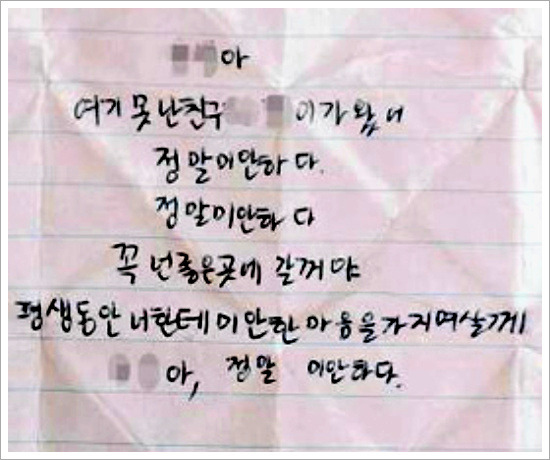 아
여기 못난친구 이가 왔너
정말미안하다.
정말미안하다
꼭 넌좋은곳에 갈꺼야
평생동안 너한테 미안한 마음을가지며살게
아, 정말 미안하다.